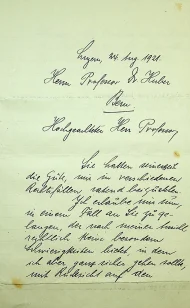 Luzern, 24 Aug 1921.
Herrn Professor Dr. Huber
Bern
Hochgeachteter Herr Professor,
Sie hatten seinerzeit
die Güte, mir in verschiedenen
Rechtsfällen, ratend beizustehen
Ich erlaube mir nun,
in einem Fall an Sie zu ge-
langen, der nach meiner
rechtlich keine besondern
Schwierigkeiten bietet, in dem
ich aber ganz sicher gehen sollte,
mit Rücksicht auf den